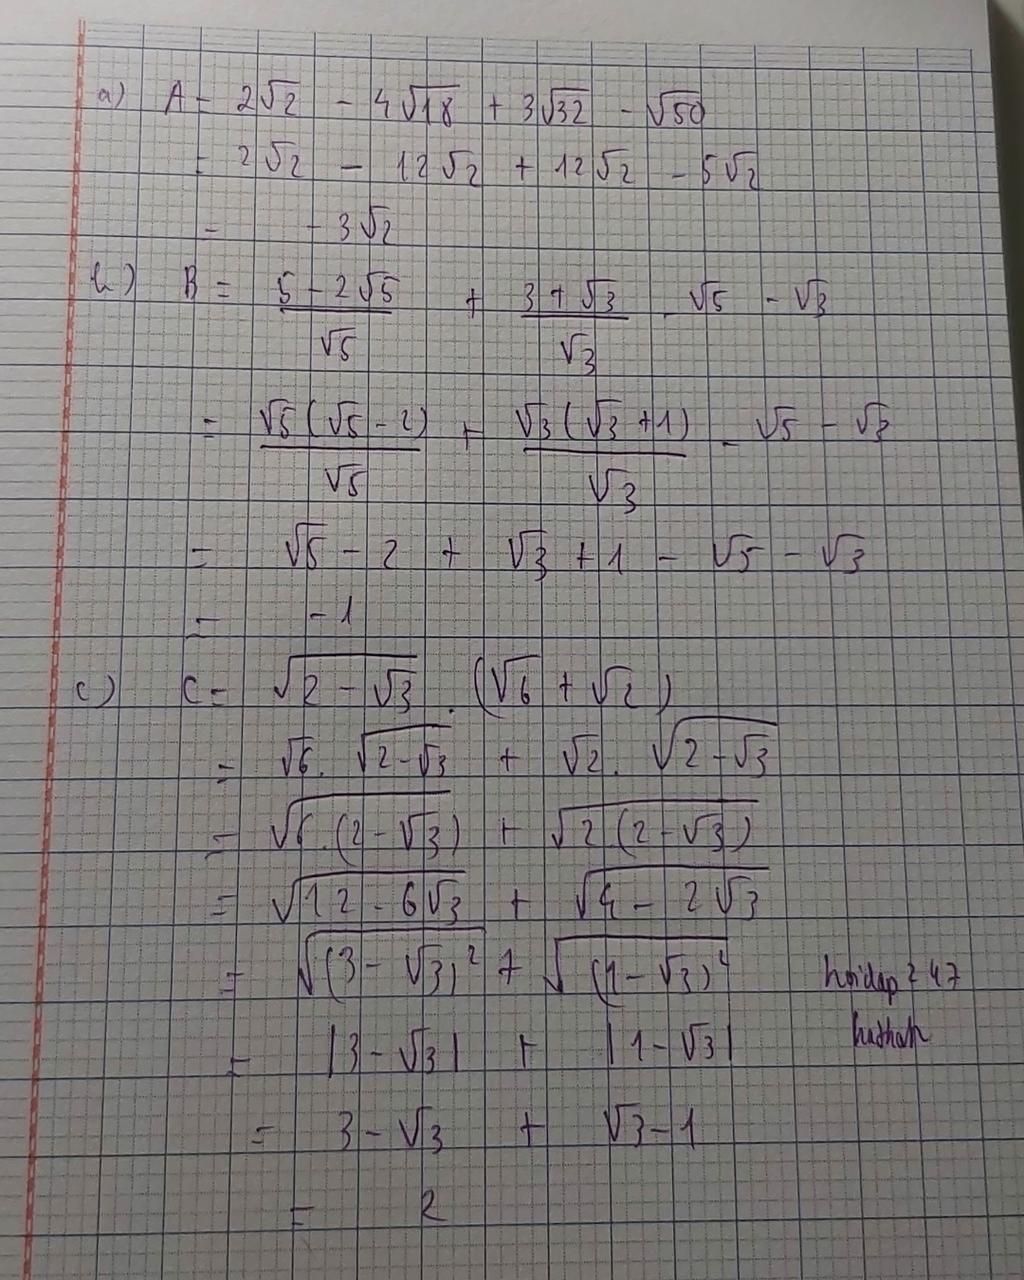 a) A = 2√2 - 4√18 + 3√32 - √50
= 2√2 - 12√2 + 12√2 - 5√2
= - 3√2
b) B = (5 - 2√5)/√5 + (3 + √3)/√3 - √5 - √3
= √5(√5 - 2)/√5 + √3(√3 + 1)/√3 - √5 - √3
= √5 - 2 + √3 + 1 - √5 - √3
= - 1
c) C = √(2 - √3) . (√6 + √2)
= √6 . √(2 - √3) + √2 . √(2 - √3)
= √(6 . (2 - √3)) + √(2 (2 - √3))
= √(12 - 6√3) + √(4 - 2√3)
= √((3 - √3)²) + √((1 - √3)²)
hoidap247
= |3 - √3| + |1 - √3|
= 3 - √3 + √3 - 1
= 2